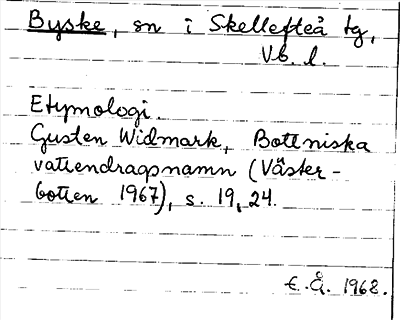 Byske, sn i Skellefteå tg,
Vb. l.
Etymologi.
Gusten Widmark, Bottniska
vattendragsnamn (Väster-
botten 1967), s. 19, 24.
E.Å. 1968.